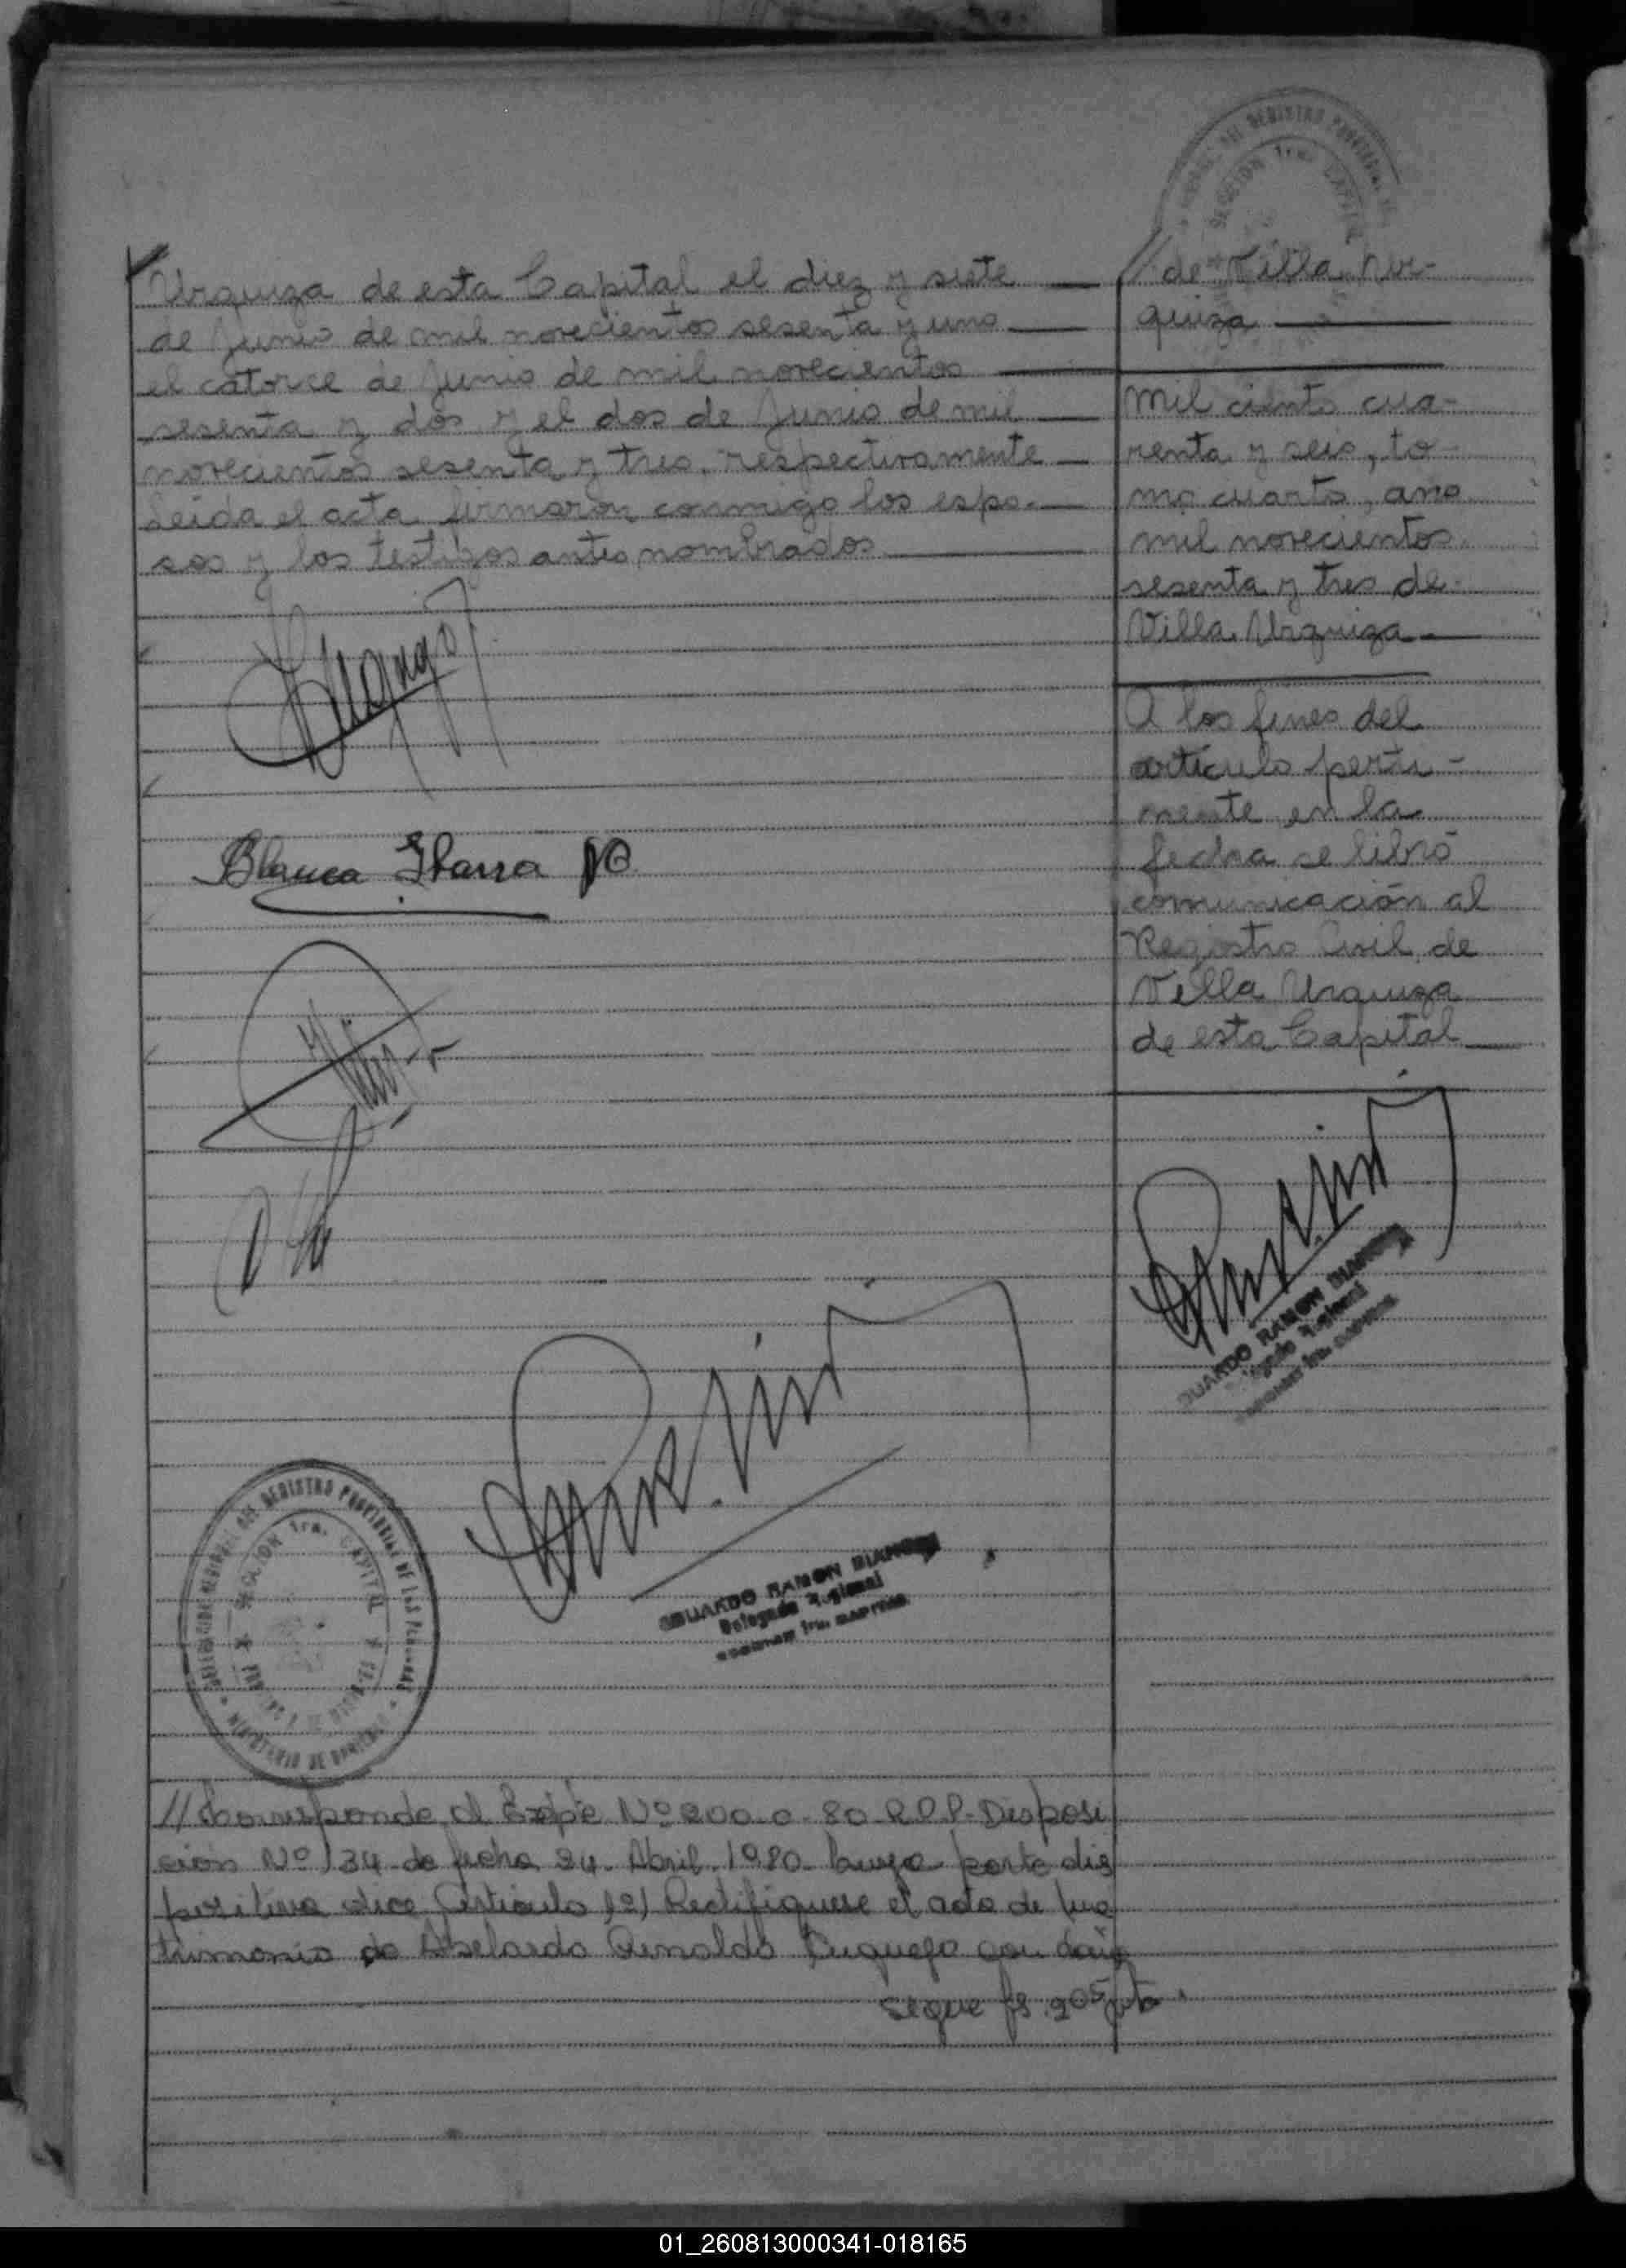 Urquiza de esta Capital el diez y siete
de Junio de mil novecientos sesenta y uno
el catorce de Junio de mil novecientos
sesenta y dos y el dos de Junio de mil
novecientos sesenta y tres, respectivamente
Leída el acta firmaron conmigo los espo-
sos y los testigos antes nombrados
Blanca Ibarra
EDUARDO RAMON BIANCHI
Delegado Regional
SECCION 1ra. CAPITAL
DEL REGISTRO PROVINCIAL DE LAS PERSONAS
SECCION 1ra. CAPITAL
MINISTERIO DE GOBIERNO
// Corresponde al Expte Nº 200-0-80-R.P.P.- Disposi
ción Nº 134 de fecha 24. Abril. 1980. cuya parte dis
positiva dice Artículo 1º) Rectifíquese el acta de ma
trimonio de Abelardo Arnaldo con
sigue fs. 205
// de Villa Ur-
quiza
mil ciento cua-
renta y seis, to-
mo cuarto, año
mil novecientos
sesenta y tres de
Villa Urquiza
A los fines del
artículo perti-
nente en la
fecha se libró
comunicación al
Registro Civil de
Villa Urquiza
de esta Capital
EDUARDO RAMON BIANCHI
Delegado Regional
SECCION 1ra. CAPITAL
DEL REGISTRO PROVINCIAL
SECCION 1ra. CAPITAL
01_260813000341-018165